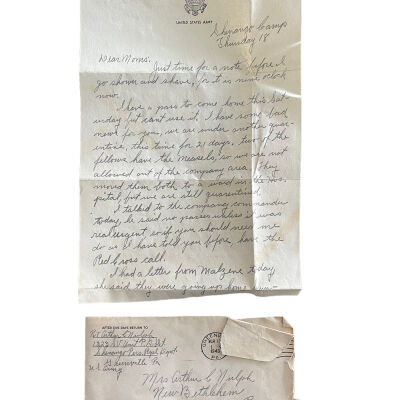 UNITED STATES ARMY
Shenango Camp
Thursday 18
Dear Moms.
Just time for a note before I
go shower and shave, for it is nine o,clock
now.
I have a pass to come home this Sat-
urday but cant use it, I have some bad
news for you, we are under another quar-
intine, this time for 21 days, two of the
fellows have the Measels, so we are not
allowed out of the company area, they
moved them both to a ward in the hos-
pital, but we are still quarentined.
I talked to the company commander
today, he said no passes unless it was
real urgent, so if you should need me
do as I have told you before, have the
Red Cross call.
I had a letter from Malzene today
she said they were going up home
AFTER FIVE DAYS RETURN TO
Pvt Arthur C Nulph
1323 SV Unit
Shenango Pers. Repl. Depot.
Greenville Pa
U S Army
GREENVILLE
1943
PA.
Mrs Arthur C Nulph
New Bethlehem